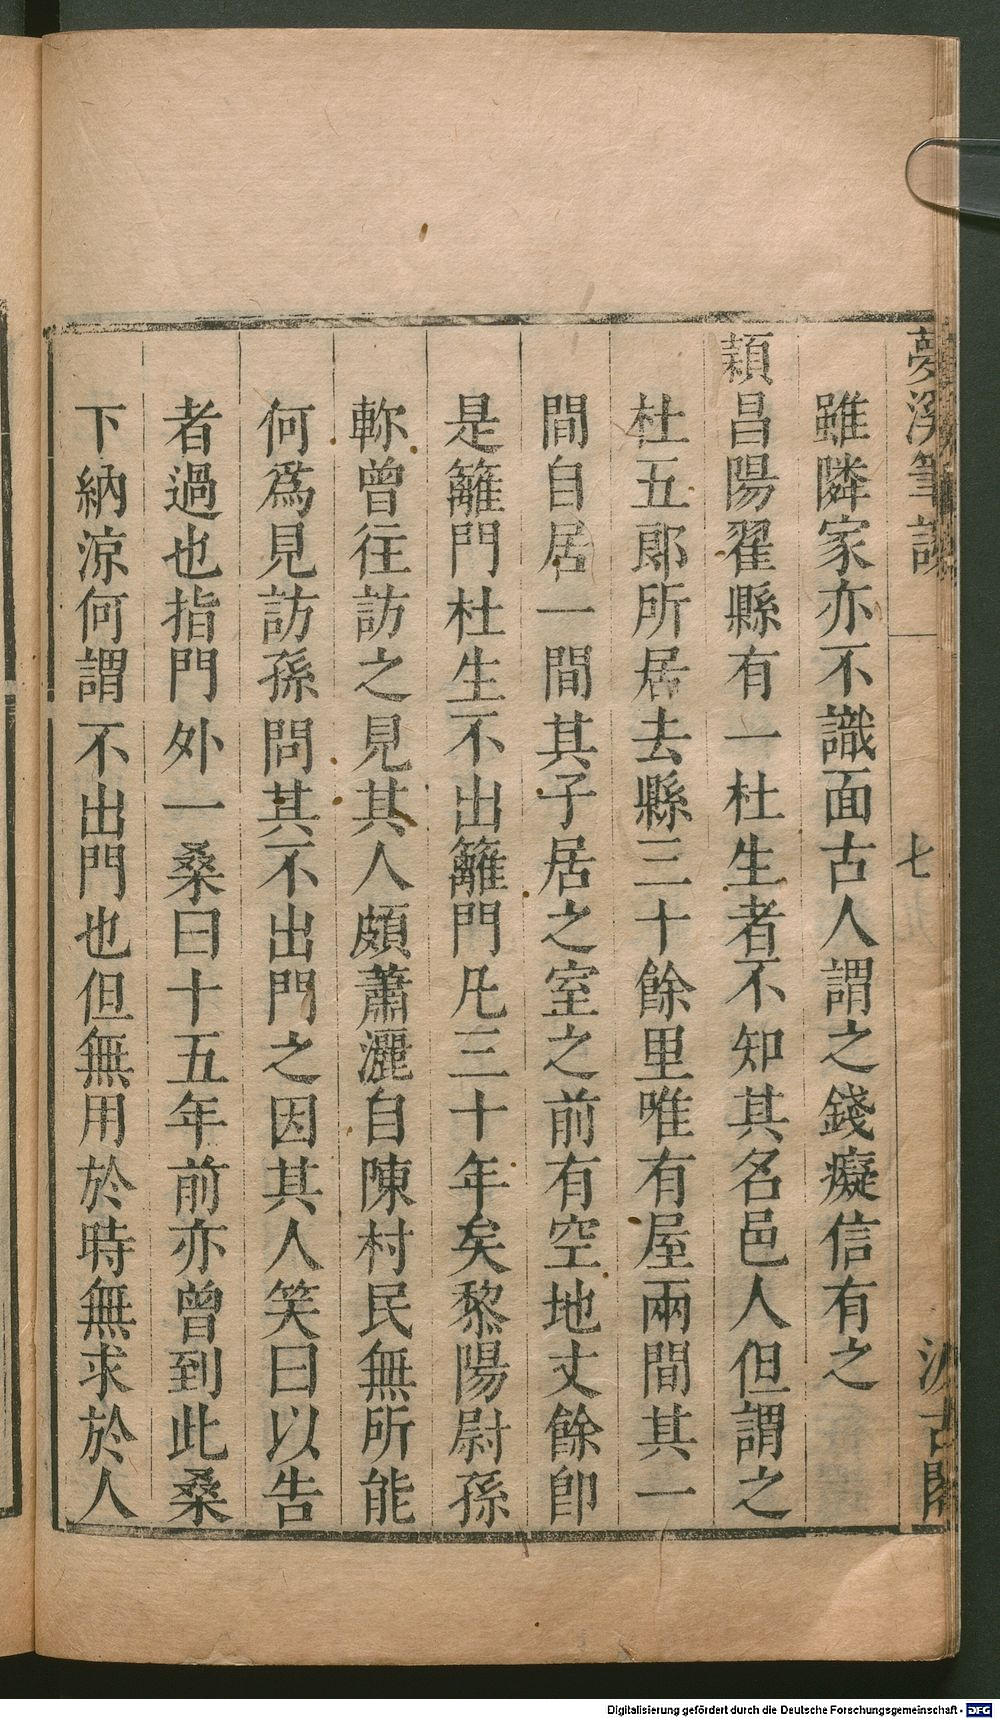 夢溪筆談 七 汲古閣
雖隣家亦不識面古人謂之錢癡信有之
頴昌陽翟縣有一杜生者不知其名邑人但謂之
杜五郎所居去縣三十餘里唯有屋兩間其一
間自居一間其子居之室之前有空地丈餘卽
是籬門杜生不出籬門凡三十年矣黎陽尉孫
軫曾往訪之見其人頗蕭灑自陳村民無所能
何爲見訪孫問其不出門之因其人笑曰以告
者過也指門外一桑曰十五年前亦曾到此桑
下納涼何謂不出門也但無用於時無求於人
Digitalisierung gefördert durch die Deutsche Forschungsgemeinschaft - DFG